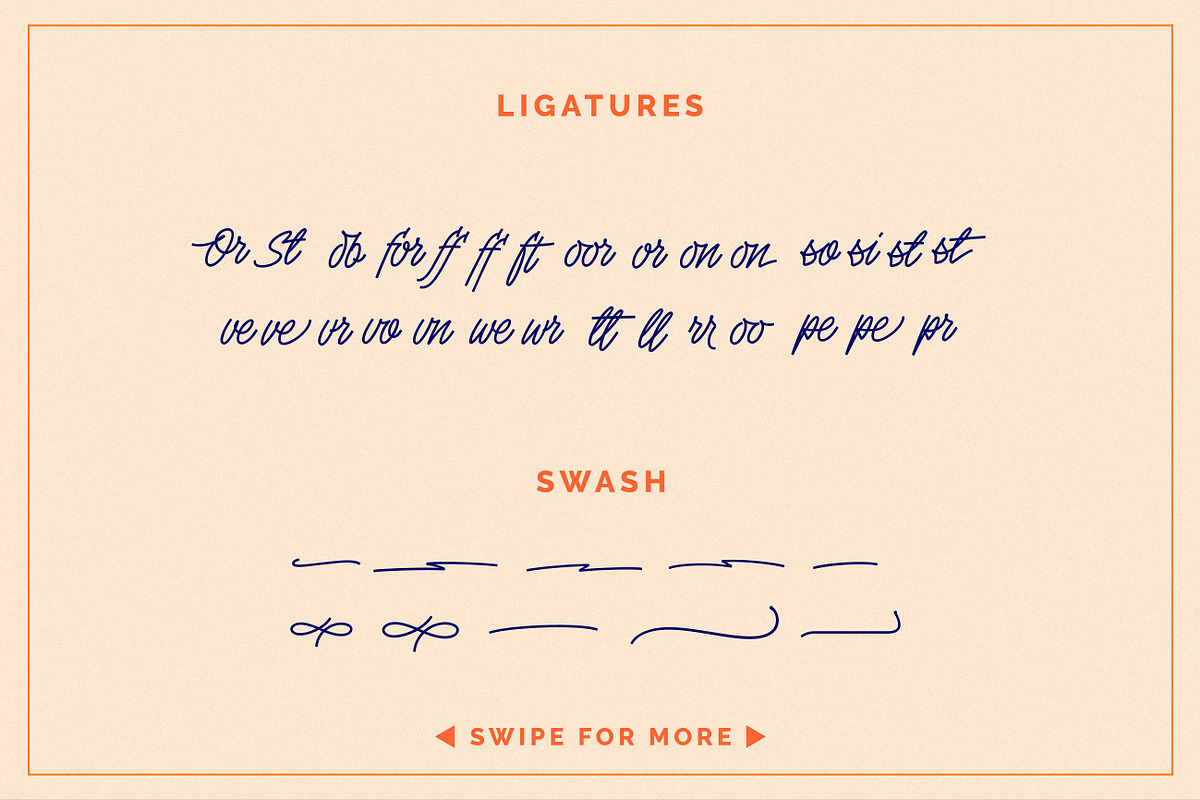 LIGATURES
Or St ob for ff ff ft oor or on on so si st st
ve ve vr vo vn we wr tt ll rr oo pe pe pr
SWASH
◀ SWIPE FOR MORE ▶